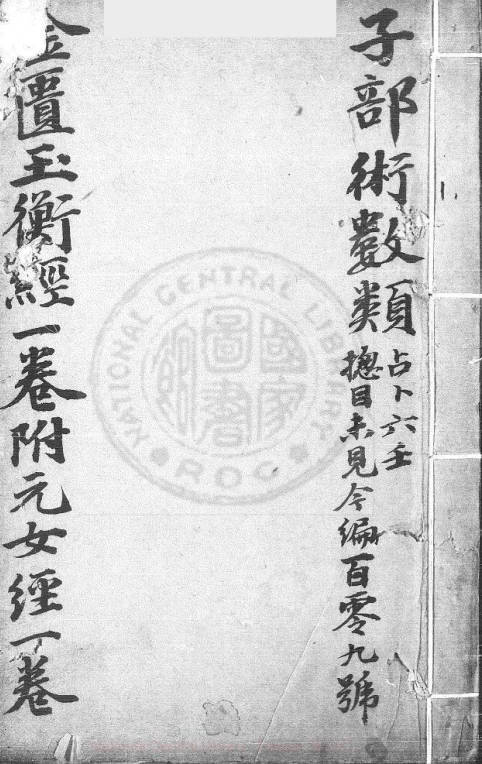 子部術數類
占卜六壬
揔目未見今編百零九號
金匱玉衡經一卷附元女經一卷
NATIONAL CENTRAL LIBRARY
ROC
國家圖書館